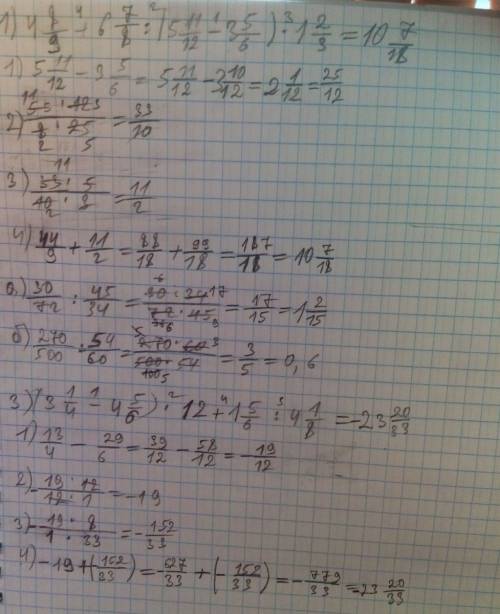 1) 4 8/9 + 6 7/8 : (5 11/12 - 3 5/6) · 1 2/3 = 10 7/18
1) 5 11/12 - 3 5/6 = 5 11/12 - 3 10/12 = 2 1/12 = 25/12
2) 55 · 123 / 8 · 25 = 33/10
3) 33 · 5 / 10 · 3 = 11/2
4) 44/9 + 11/2 = 88/18 + 99/18 = 187/18 = 10 7/18
а) 30/72 : 45/34 = 30 · 34 / 72 · 45 = 17/15 = 1 2/15
б) 270/500 : 54/60 = 270 · 60 / 500 · 54 = 3/5 = 0,6
3) (3 1/4 - 4 5/6) · 12 + 1 5/6 : 4 1/8 = -23 20/33
1) 13/4 - 29/6 = 39/12 - 58/12 = -19/12
2) -19 · 12 / 12 · 1 = -19
3) -19 · 8 / 1 · 33 = -152/33
4) -19 + (-152/33) = -627/33 + (-152/33) = -779/33 = -23 20/33